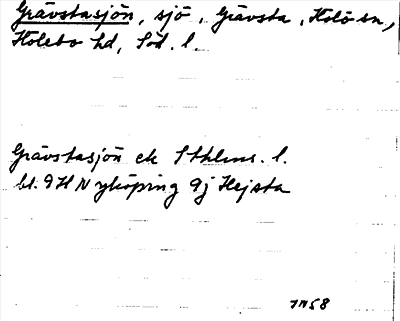 Grävstasjön, sjö, Grävsta, Holö sn,
Holebo hd, Söd. l.
Grävstasjön ek Sthlms. l.
bl. 9H Nyköping 9j Hejsta
JN58